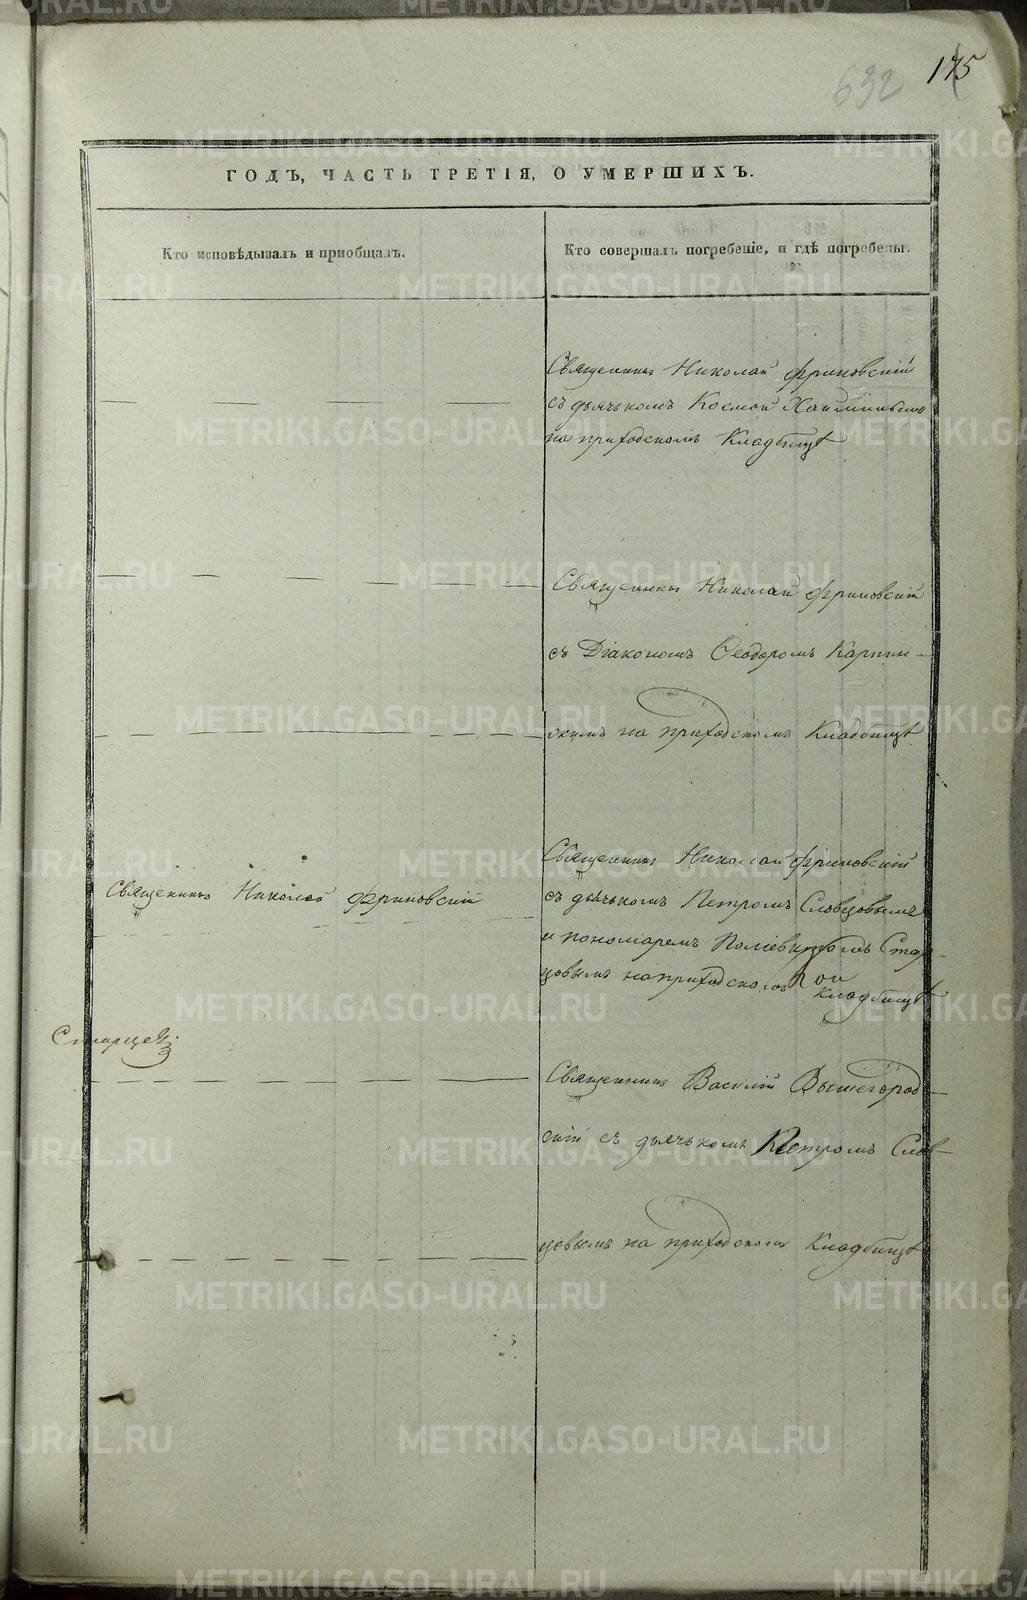 632 175
ГОДЪ, ЧАСТЬ ТРЕТІЯ, О УМЕРШИХЪ.
Кто исповѣдывалъ и приобщалъ.
Кто совершалъ погребеніе, и гдѣ погребены.
Священникъ Николай Фриновскій
съ дьячькомъ Космой
на приходскомъ Кладбищѣ
Священникъ Николай Фриновскій
съ Діакономъ Ѳеодоромъ Карпин-
скимъ на приходскомъ Кладбищѣ
Священникъ Николай Фриновскій
Священникъ Николай Фриновскій
съ дьячькомъ Петромъ Словцовымъ
и пономаремъ Стар-
цовымъ на приходскомъ
Кладбищѣ
Старцевъ
Священникъ Василій Вышегород-
скій съ дьячькомъ Петромъ Слов-
цевымъ на приходскомъ Кладбищѣ
METRIKI.GASO-URAL.RU